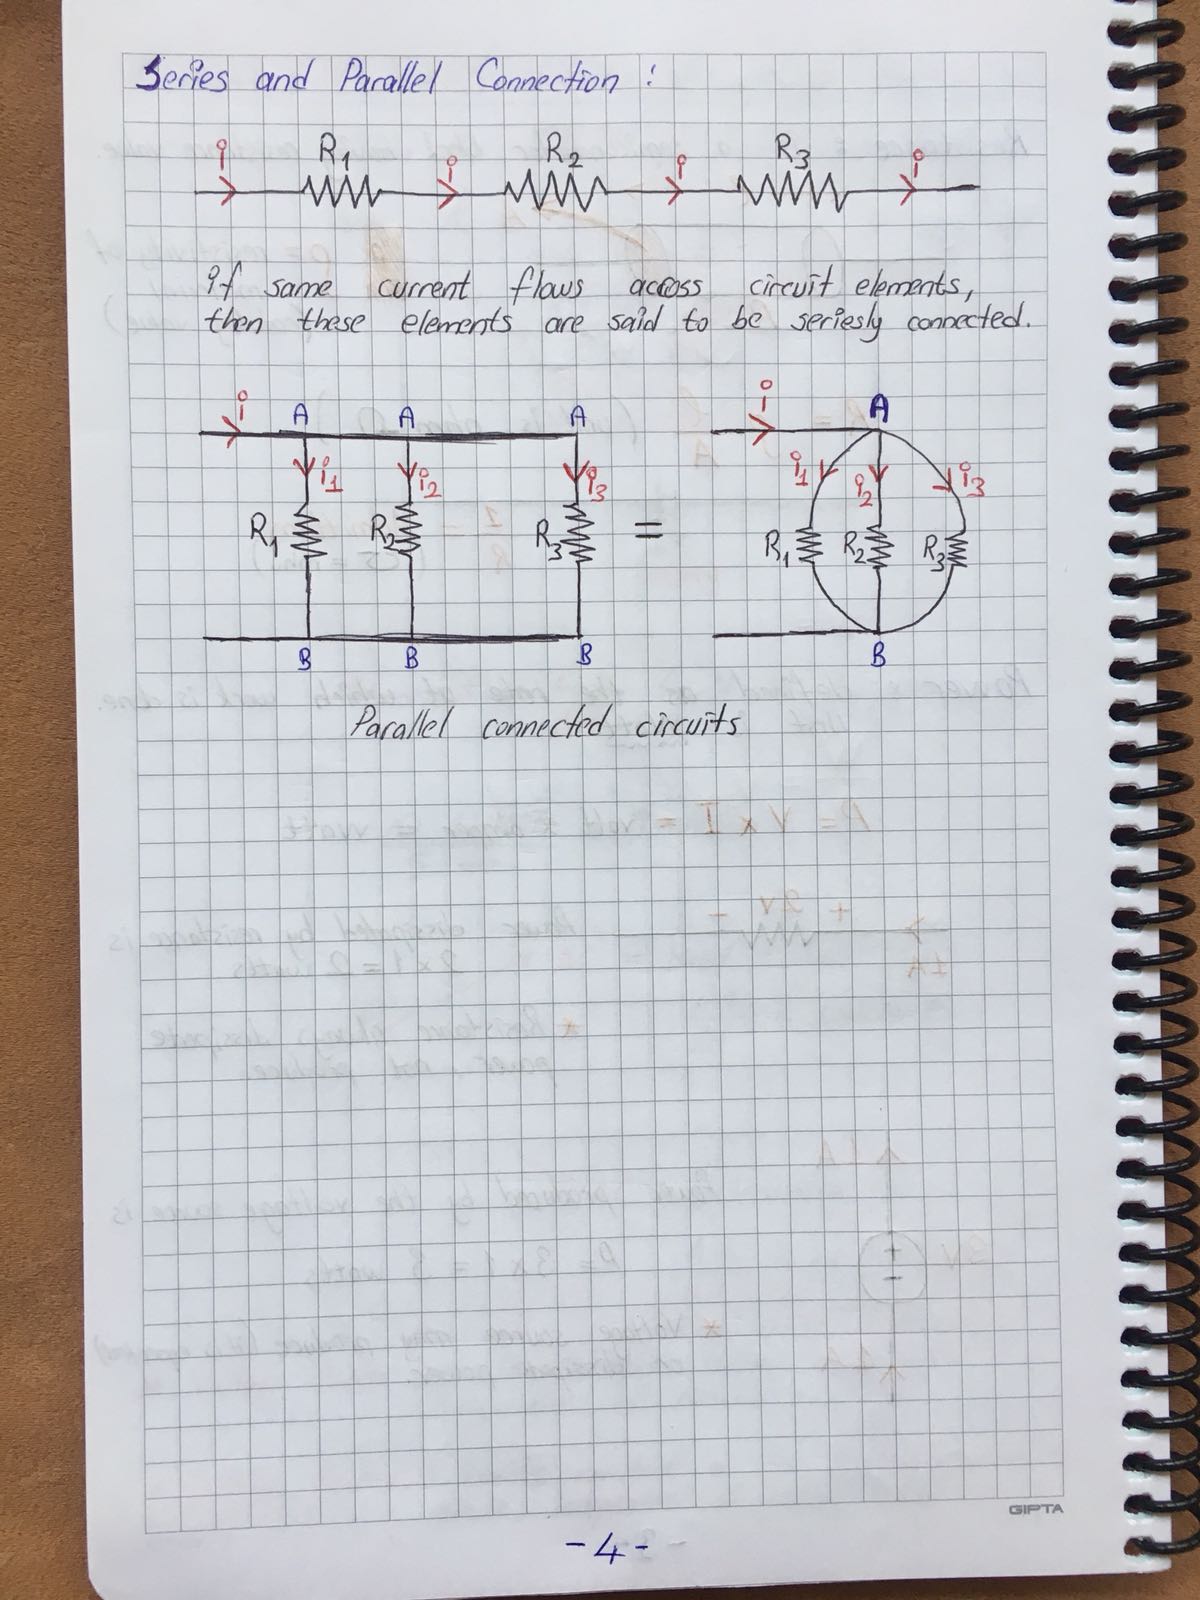 Series and Parallel Connection :
i R1 i R2 i R3 i
if same current flows across circuit elements,
then these elements are said to be seriesly connected.
i A A A i A
i1 i2 i3 i1 i2 i3
R1 R2 R3 = R1 R2 R3
B B B B
Parallel connected circuits
GIPTA
-4-